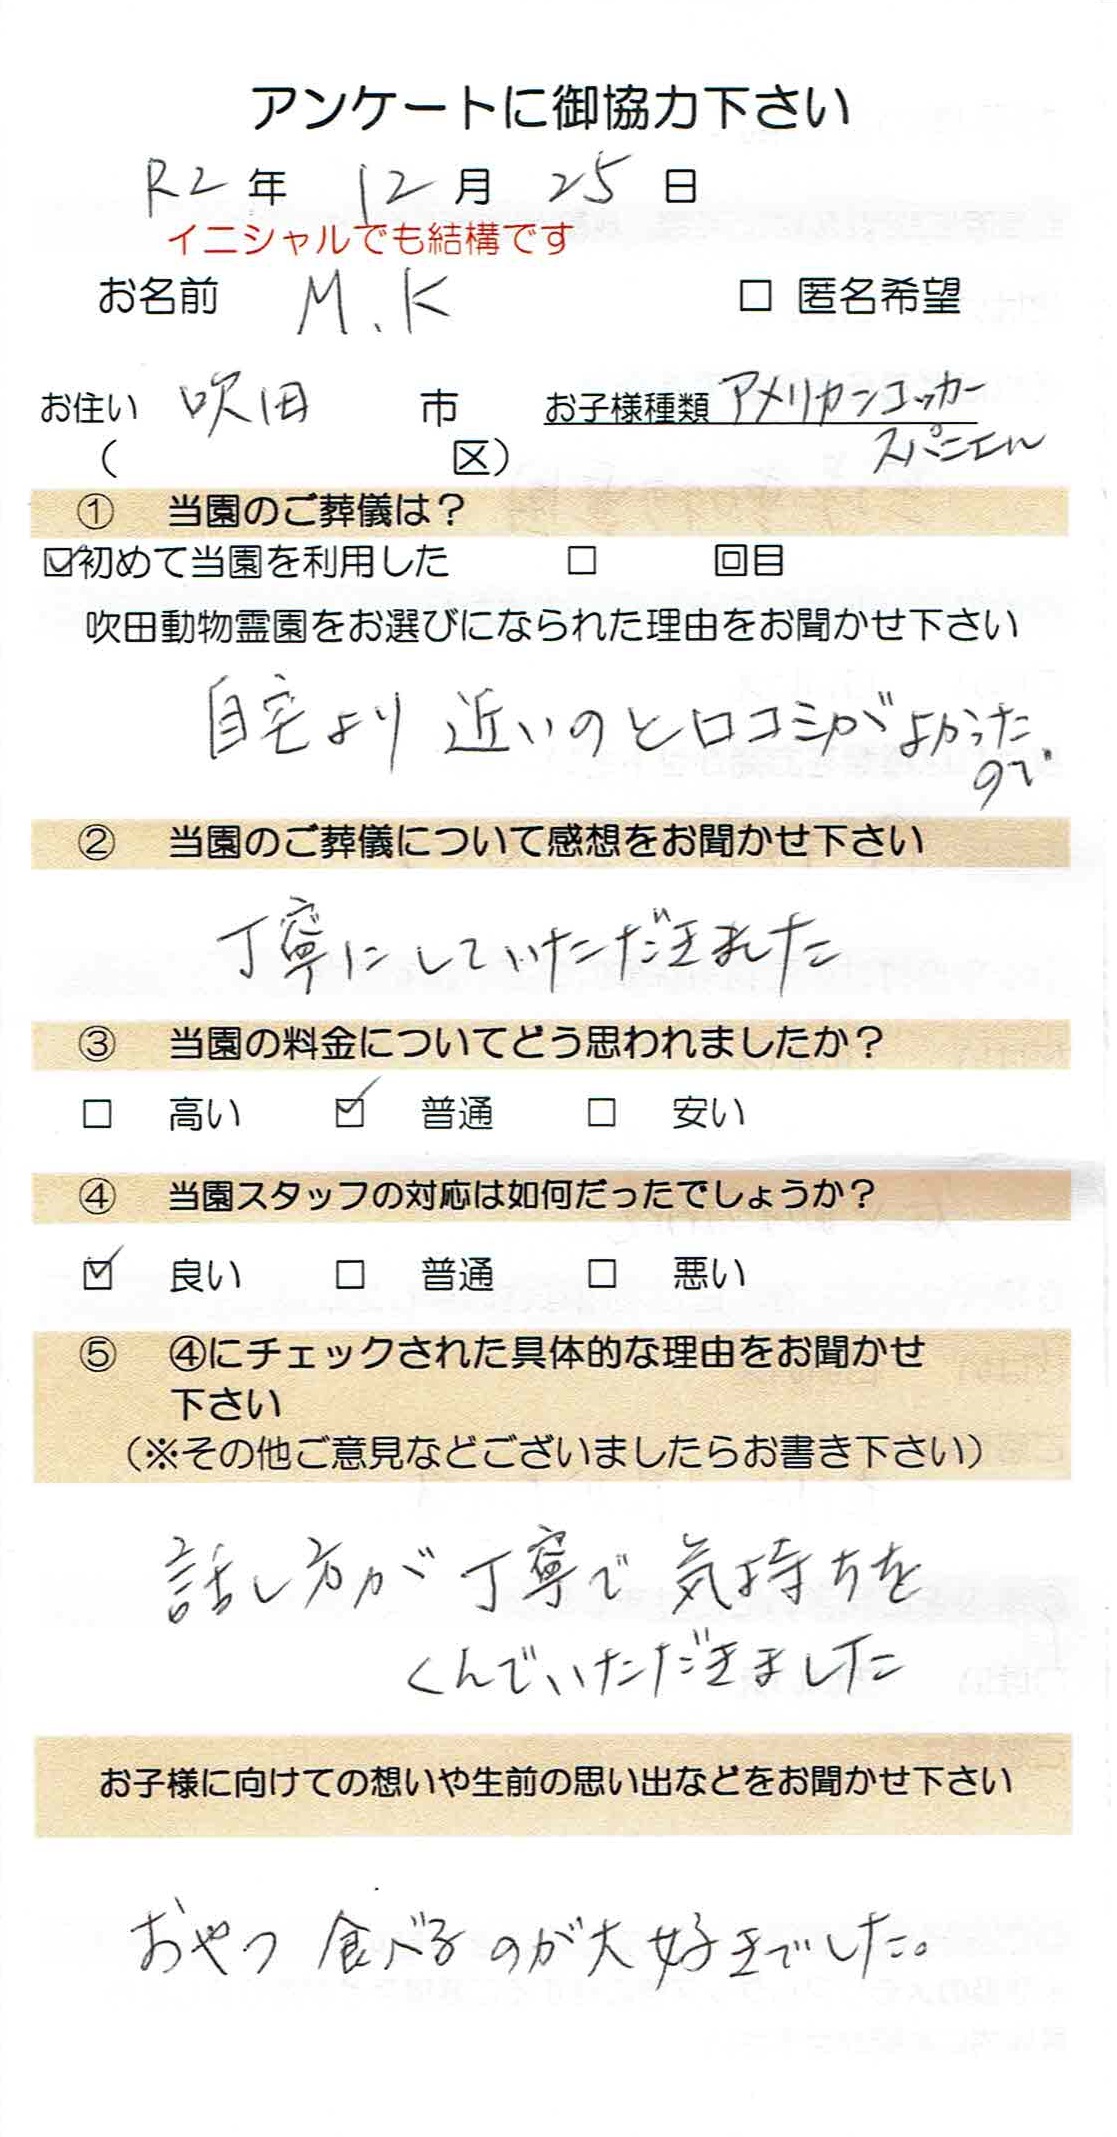 アンケートに御協力下さい
R2年 12月 25日
イニシャルでも結構です
お名前 M.K □ 匿名希望
お住い 吹田 市 お子様種類 アメリカンコッカー
( 区) スパニエル
① 当園のご葬儀は？
☑初めて当園を利用した □ 回目
吹田動物霊園をお選びになられた理由をお聞かせ下さい
自宅より 近いのと口コミがよかった
ので
② 当園のご葬儀について感想をお聞かせ下さい
丁寧にしていただきました
③ 当園の料金についてどう思われましたか？
□ 高い ☑ 普通 □ 安い
④ 当園スタッフの対応は如何だったでしょうか？
☑ 良い □ 普通 □ 悪い
⑤ ④にチェックされた具体的な理由をお聞かせ
下さい
（※その他ご意見などございましたらお書き下さい）
話し方が丁寧で 気持ちを
くんでいただきました
お子様に向けての想いや生前の思い出などをお聞かせ下さい
おやつ 食べるのが大好きでした。